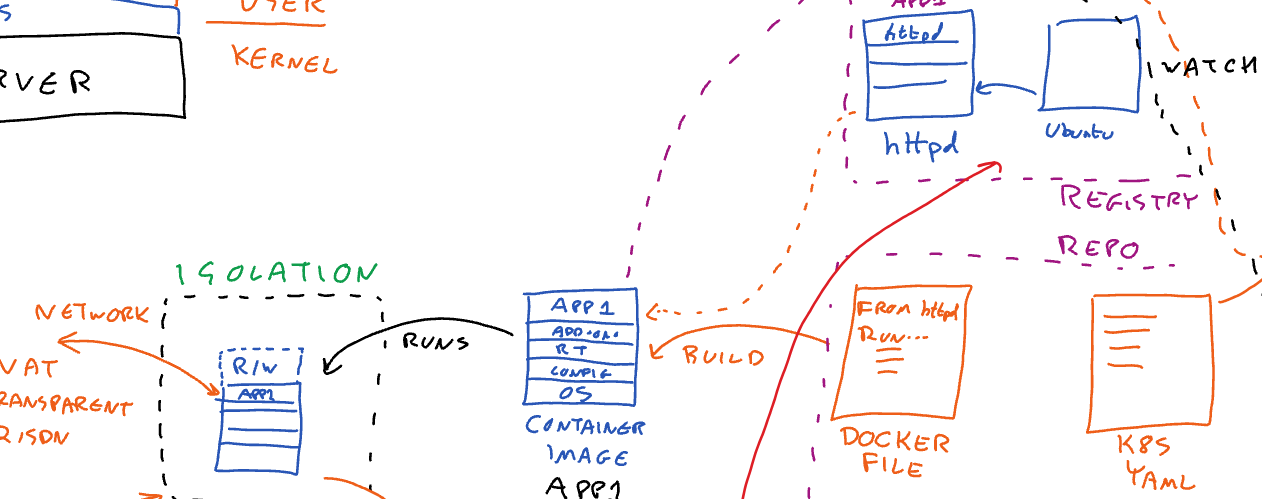 USER
KERNEL
RVER
APP1
httpd
httpd
Ubuntu
WATCH
REGISTRY
REPO
ISOLATION
NETWORK
R/W
APP1
RUNS
APP1
ADD-ON.
RT
CONFIG
OS
CONTAINER
IMAGE
APP1
BUILD
FROM httpd
RUN...
DOCKER
FILE
K8S
YAML
VAT
RANSPARENT